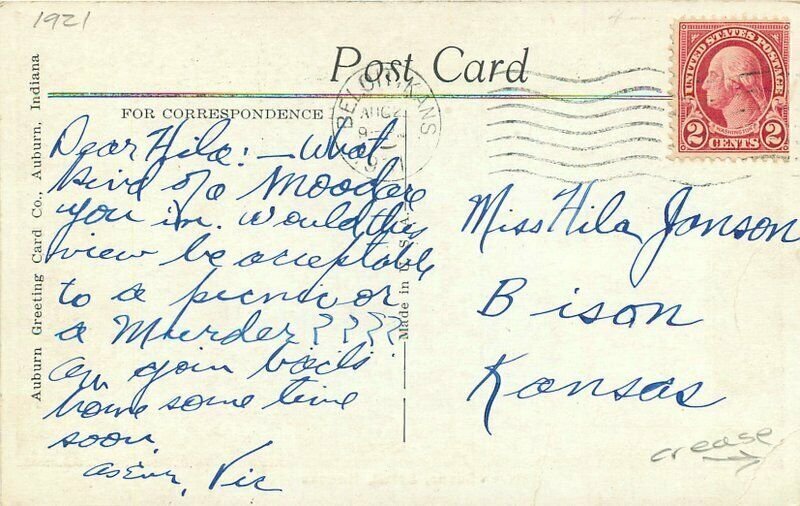 1921
Post Card
FOR CORRESPONDENCE
Auburn Greeting Card Co., Auburn, Indiana
Made in U.S.A.
BELOIT, KANS.
AUG 2
UNITED STATES POSTAGE
WASHINGTON
2 CENTS 2
Dear Hila: — What
kind of a Mood are
you in. Would this
view be acceptable
to a picnic or
a Murder ????
Am goin back
home some time
soon.
Vic
Miss Hila Janson
Bison
Kansas
crease